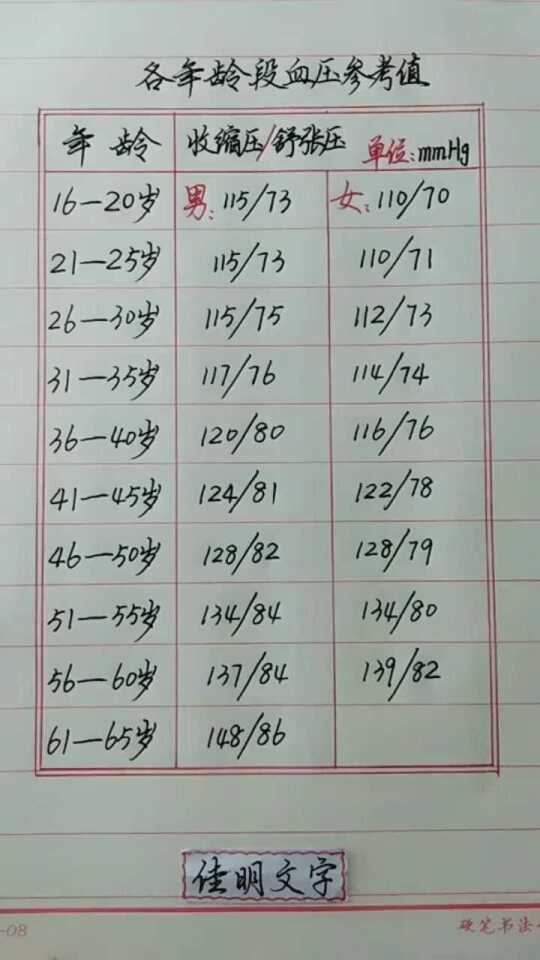 各年龄段血压参考值
年龄 收缩压/舒张压 单位:mmHg
16—20岁 男:115/73 女:110/70
21—25岁 115/73 110/71
26—30岁 115/75 112/73
31—35岁 117/76 114/74
36—40岁 120/80 116/76
41—45岁 124/81 122/78
46—50岁 128/82 128/79
51—55岁 134/84 134/80
56—60岁 137/84 139/82
61—65岁 148/86
佳明文字
-08 硬笔书法